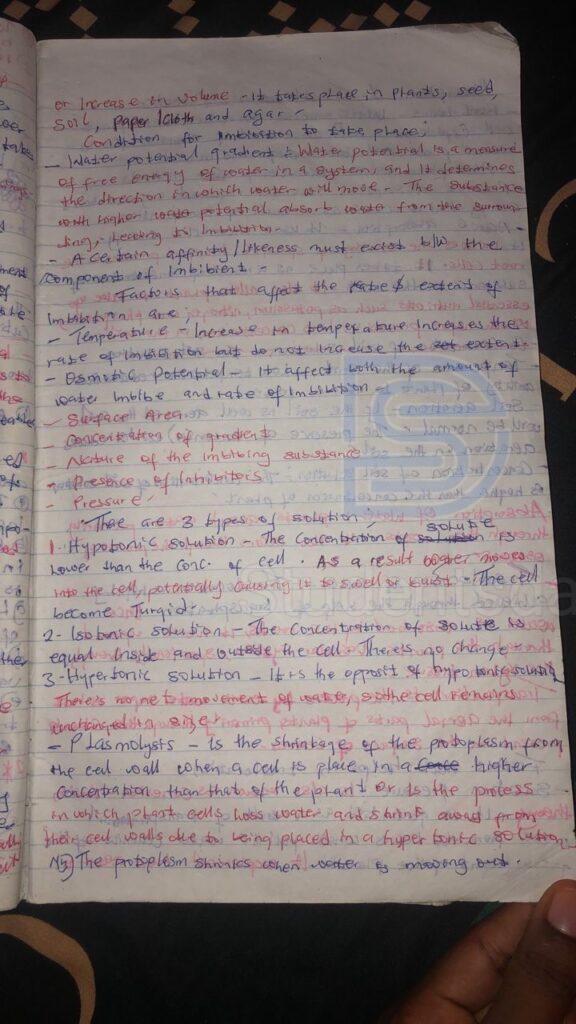 or Increase in volume - It takes place in plants, seed,
Soil, paper/cloth and agar.
Condition for imbibition to take place;
- Water potential gradient : Water potential is a measure
of free energy of water in a system, and it determines
the direction in which water will move - The substance
with higher water potential absorb water from the surroun
ding, leading to Imbibition.
- A certain affinity/likeness must exist b/w the
component of imbibient.
Factors that affect the rate & extent of
imbibition are;
- Temperature - Increase in temperature increases the
rate of imbibition but do not increase the extent.
- Osmotic Potential - It affect both the amount of
water imbibe and rate of imbibition
- Surface Area
- Concentration of gradient
- Nature of the imbibing substance
- Presence of Inhibitors
- Pressure
Thee are 3 types of solution;
1. Hypotonic solution - The concentration of solute is
lower than the conc. of cell. As a result water moves
into the cell, potentially causing it to swell or burst - The cell
become Turgid.
2- Isotonic solution - The concentration of solute is
equal inside and outside the cell - There's no change
3- Hypertonic solution - It is the opposit of hypotonic solution
There's no net movement of water, so the cell remains
unchanged in size
- Plasmolysis - Is the shrinkage of the protoplasm from
the cell wall when a cell is place in a higher
concentration than that of the plant or is the process
in which plant cells loss water and shrink away from
their cell walls due to being placed in a hypertonic solution.
NB) The protoplasm shrinks when water is moving out.